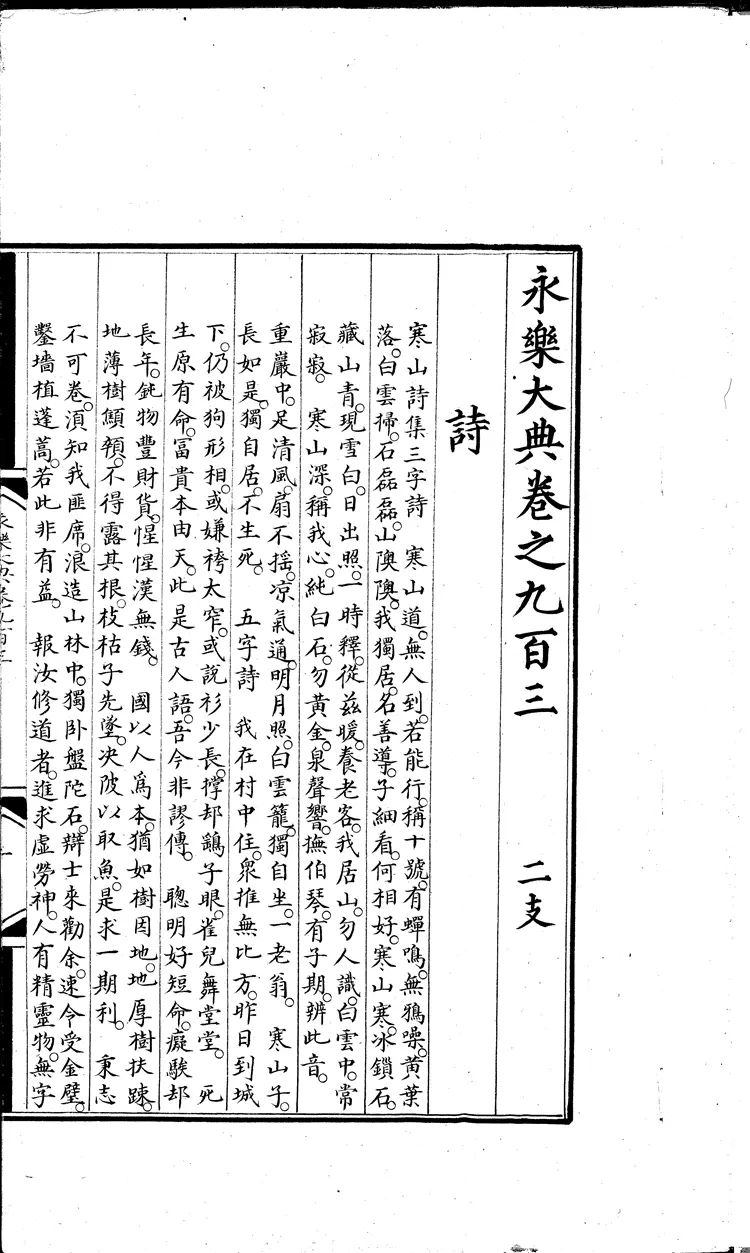 永樂大典卷之九百三　二支
詩
寒山詩集三字詩　寒山道。無人到。若能行。稱十號。有蟬鳴。無鴉噪。黃葉
落。白雲掃。石磊磊。山隩隩。我獨居。名善導。子細看。何相好。寒山寒。冰鎖石。
藏山青。現雪白。日出照。一時釋。從茲暖。養老客。我居山。勿人識。白雲中。常
寂寂。　寒山深。稱我心。純白石。勿黃金。泉聲響。撫伯琴。有子期。辨此音。
重巖中。足清風。扇不揺。凉氣通。明月照。白雲籠。獨自坐。一老翁。　寒山子。
長如是。獨自居。不生死。　五字詩　我在村中住。衆推無比方。昨日到城
下。仍被狗形相。或嫌袴太窄。或說衫少長。撑却鷂子眼。雀兒舞堂堂。　死
生原有命。冨貴本由天。此是古人語。吾今非謬傳。　聰明好短命。癡騃却
長年。鈍物豐財貨。惺惺漢無錢。　國以人爲本。猶如樹因地。地厚樹扶踈。
地薄樹顦顇。不得露其根。枝枯子先墜。决陂以取魚。是求一期利。　秉志
不可卷。湏知我匪席。浪造山林中。獨卧盤陀石。辯士來勸余。速令受金璧。
鑿墻植蓬蒿。若此非有益。　報汝修道者。進求虛勞神。人有精靈物。無字
永樂大典卷九百三
一